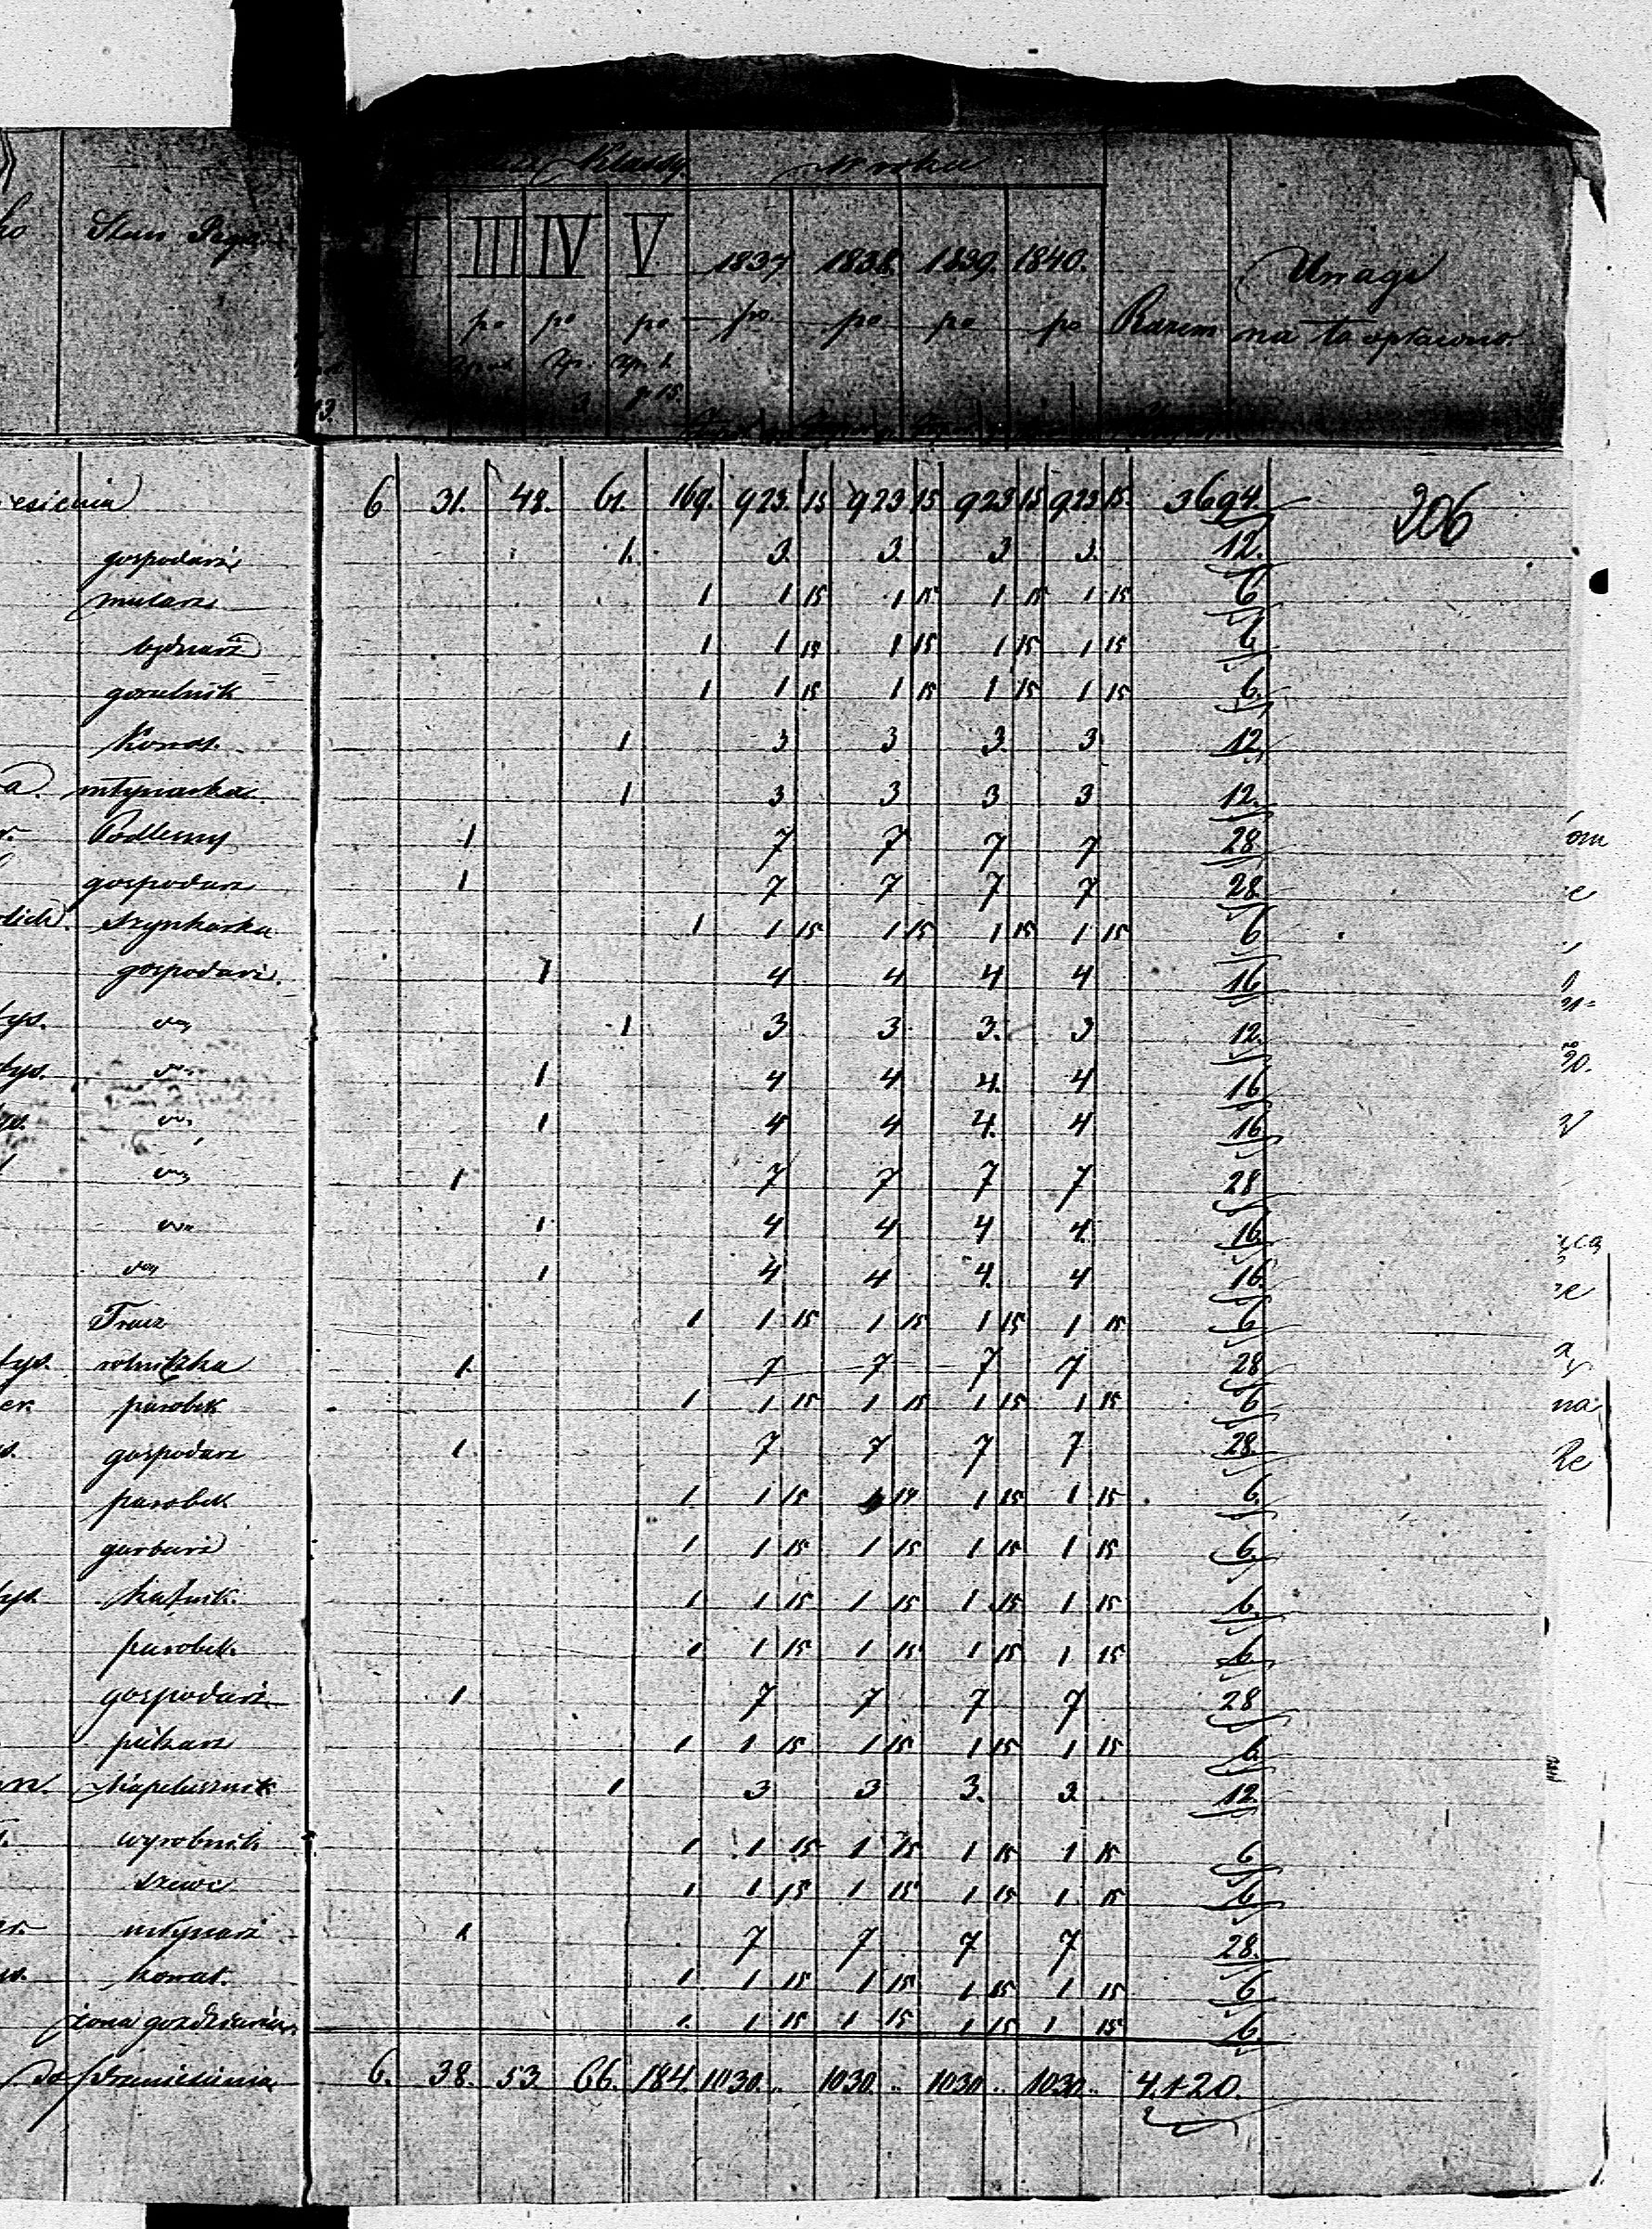 Klassy W roku
III IV V 1837 1838. 1839. 1840. Uwagi
po po po po. po po po Razem na to opłacono
3 g 15.
6 31. 48. 61. 169. 923. 15 923 15 923 15 923 15. 3694. 206
gospodarz 1. 3. 3. 3 3. 12.
mularz 1 1 15 1 15 1 15 1 15 6
bednarz 1 1 15 1 15 1 15 1 15 6
gorzelnik 1 1 15 1 15 1 15 1 15 6.
Kowal. 1 3 3 3. 3 12
a. młynarka. 1 3 3 3 3 12.
Podleśny 1 7 7 7 7 28.
gospodarz 1 7 7 7 7 28
Szynkarka 1 1 15 1 15 1 15 1 15 6
gospodarz. 1 4 4 4 4 16
tys. " 1 3 3 3. 3 12.
tys. " 1 4 4 4. 4 16
" 1 4 4 4. 4 16
" 1 7 7 7 7 28
" 1 4 4 4 4. 16.
" 1 4 4 4. 4 16.
Tracz 1 1 15 1 15 1 15 1 15 6
tys. rolniczka 1. 7 7 7 7 28
er. parobek 1 1 15 1 15 1 15 1 15 6
gospodarz 1. 7 7 7 7 28.
parobek 1 1 15 1 14 1 15 1 15 6.
garbarz 1 1 15 1 15 1 15 1 15 6.
1 1 15 1 15 1 15 1 15 6.
parobek. 1 1 15 1 15 1 15 1 15 6
gospodarz 1 7 7 7 7 28
piekarz 1 1 15 1 15 1 15 1 15 6.
Kapelusznik 1 3 3 3. 3. 12.
wyrobnik 1 1 15 1 15 1 15 1 15 6
szewc 1 1 15 1 15 1 15 1 15 6.
młynarz 1 7 7 7 7 28.
kowal. 1 1 15 1 15 1 15 1 15 6
żona 1. 1 15 1 15 1 15 1 15 6.
Do przeniesienia 6. 38. 53. 66. 184. 1030. .. 1030. .. 1030 .. 1030 .. 4.120.